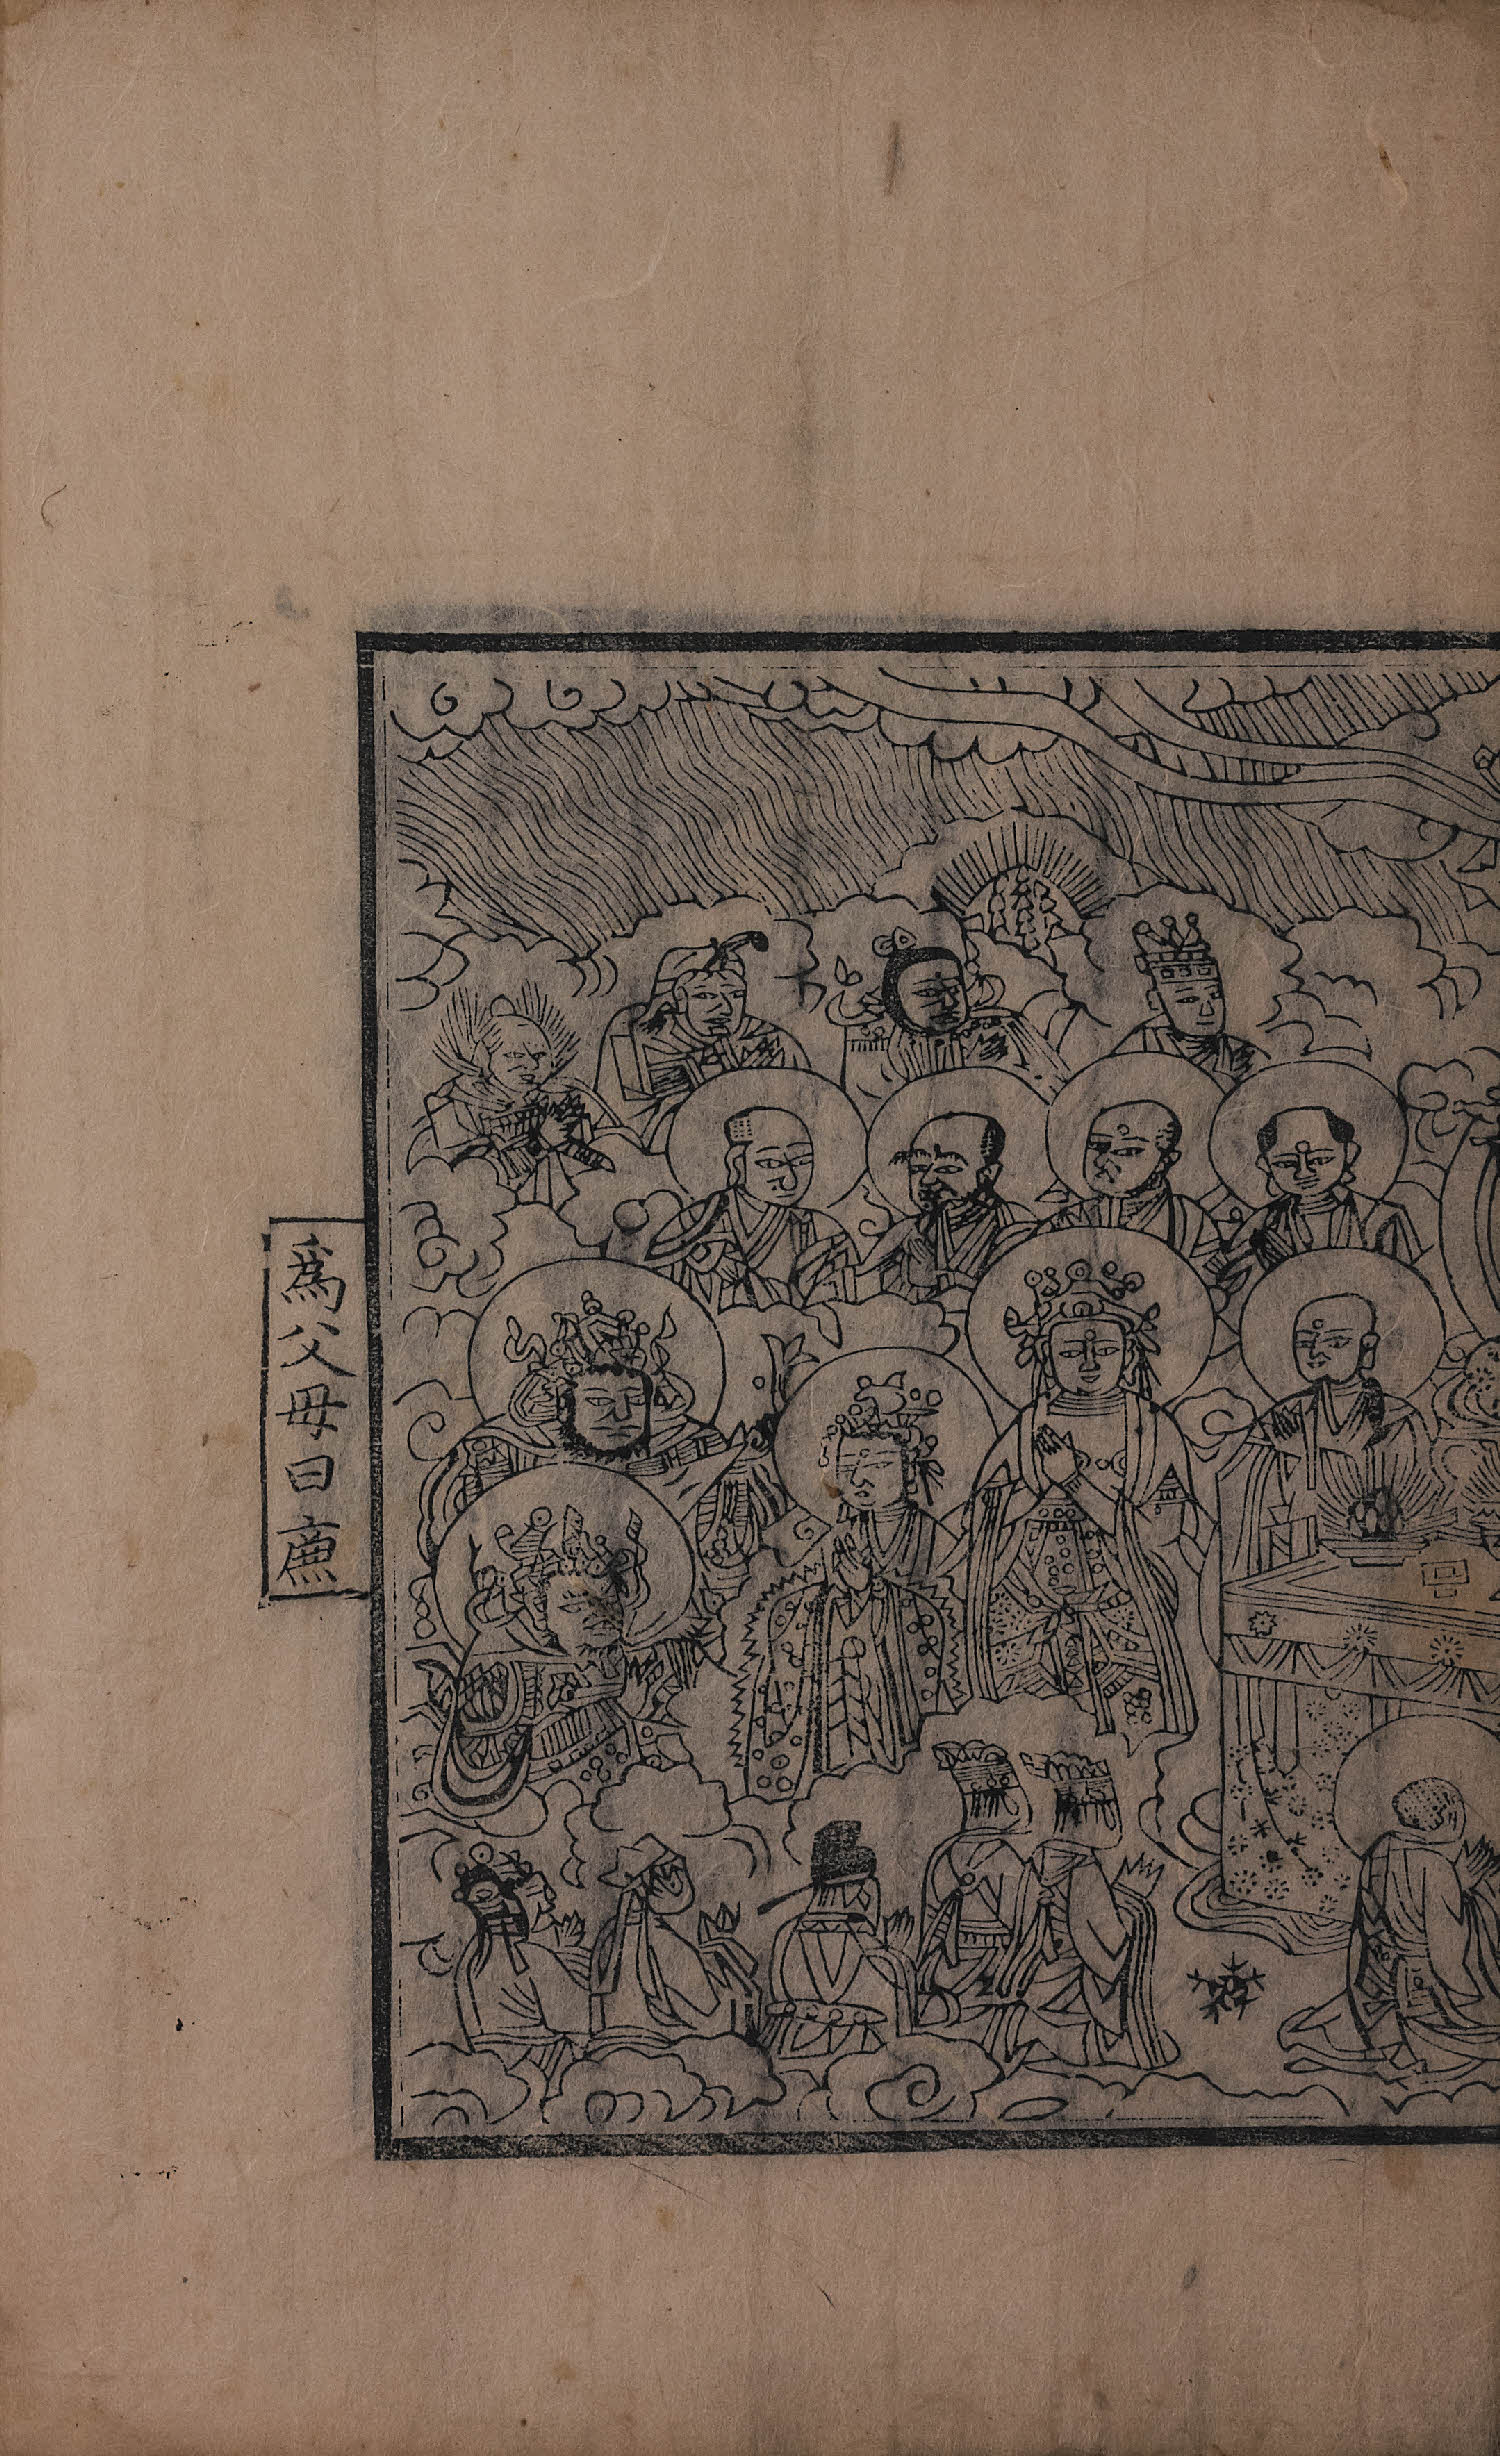 爲父母曰㢘